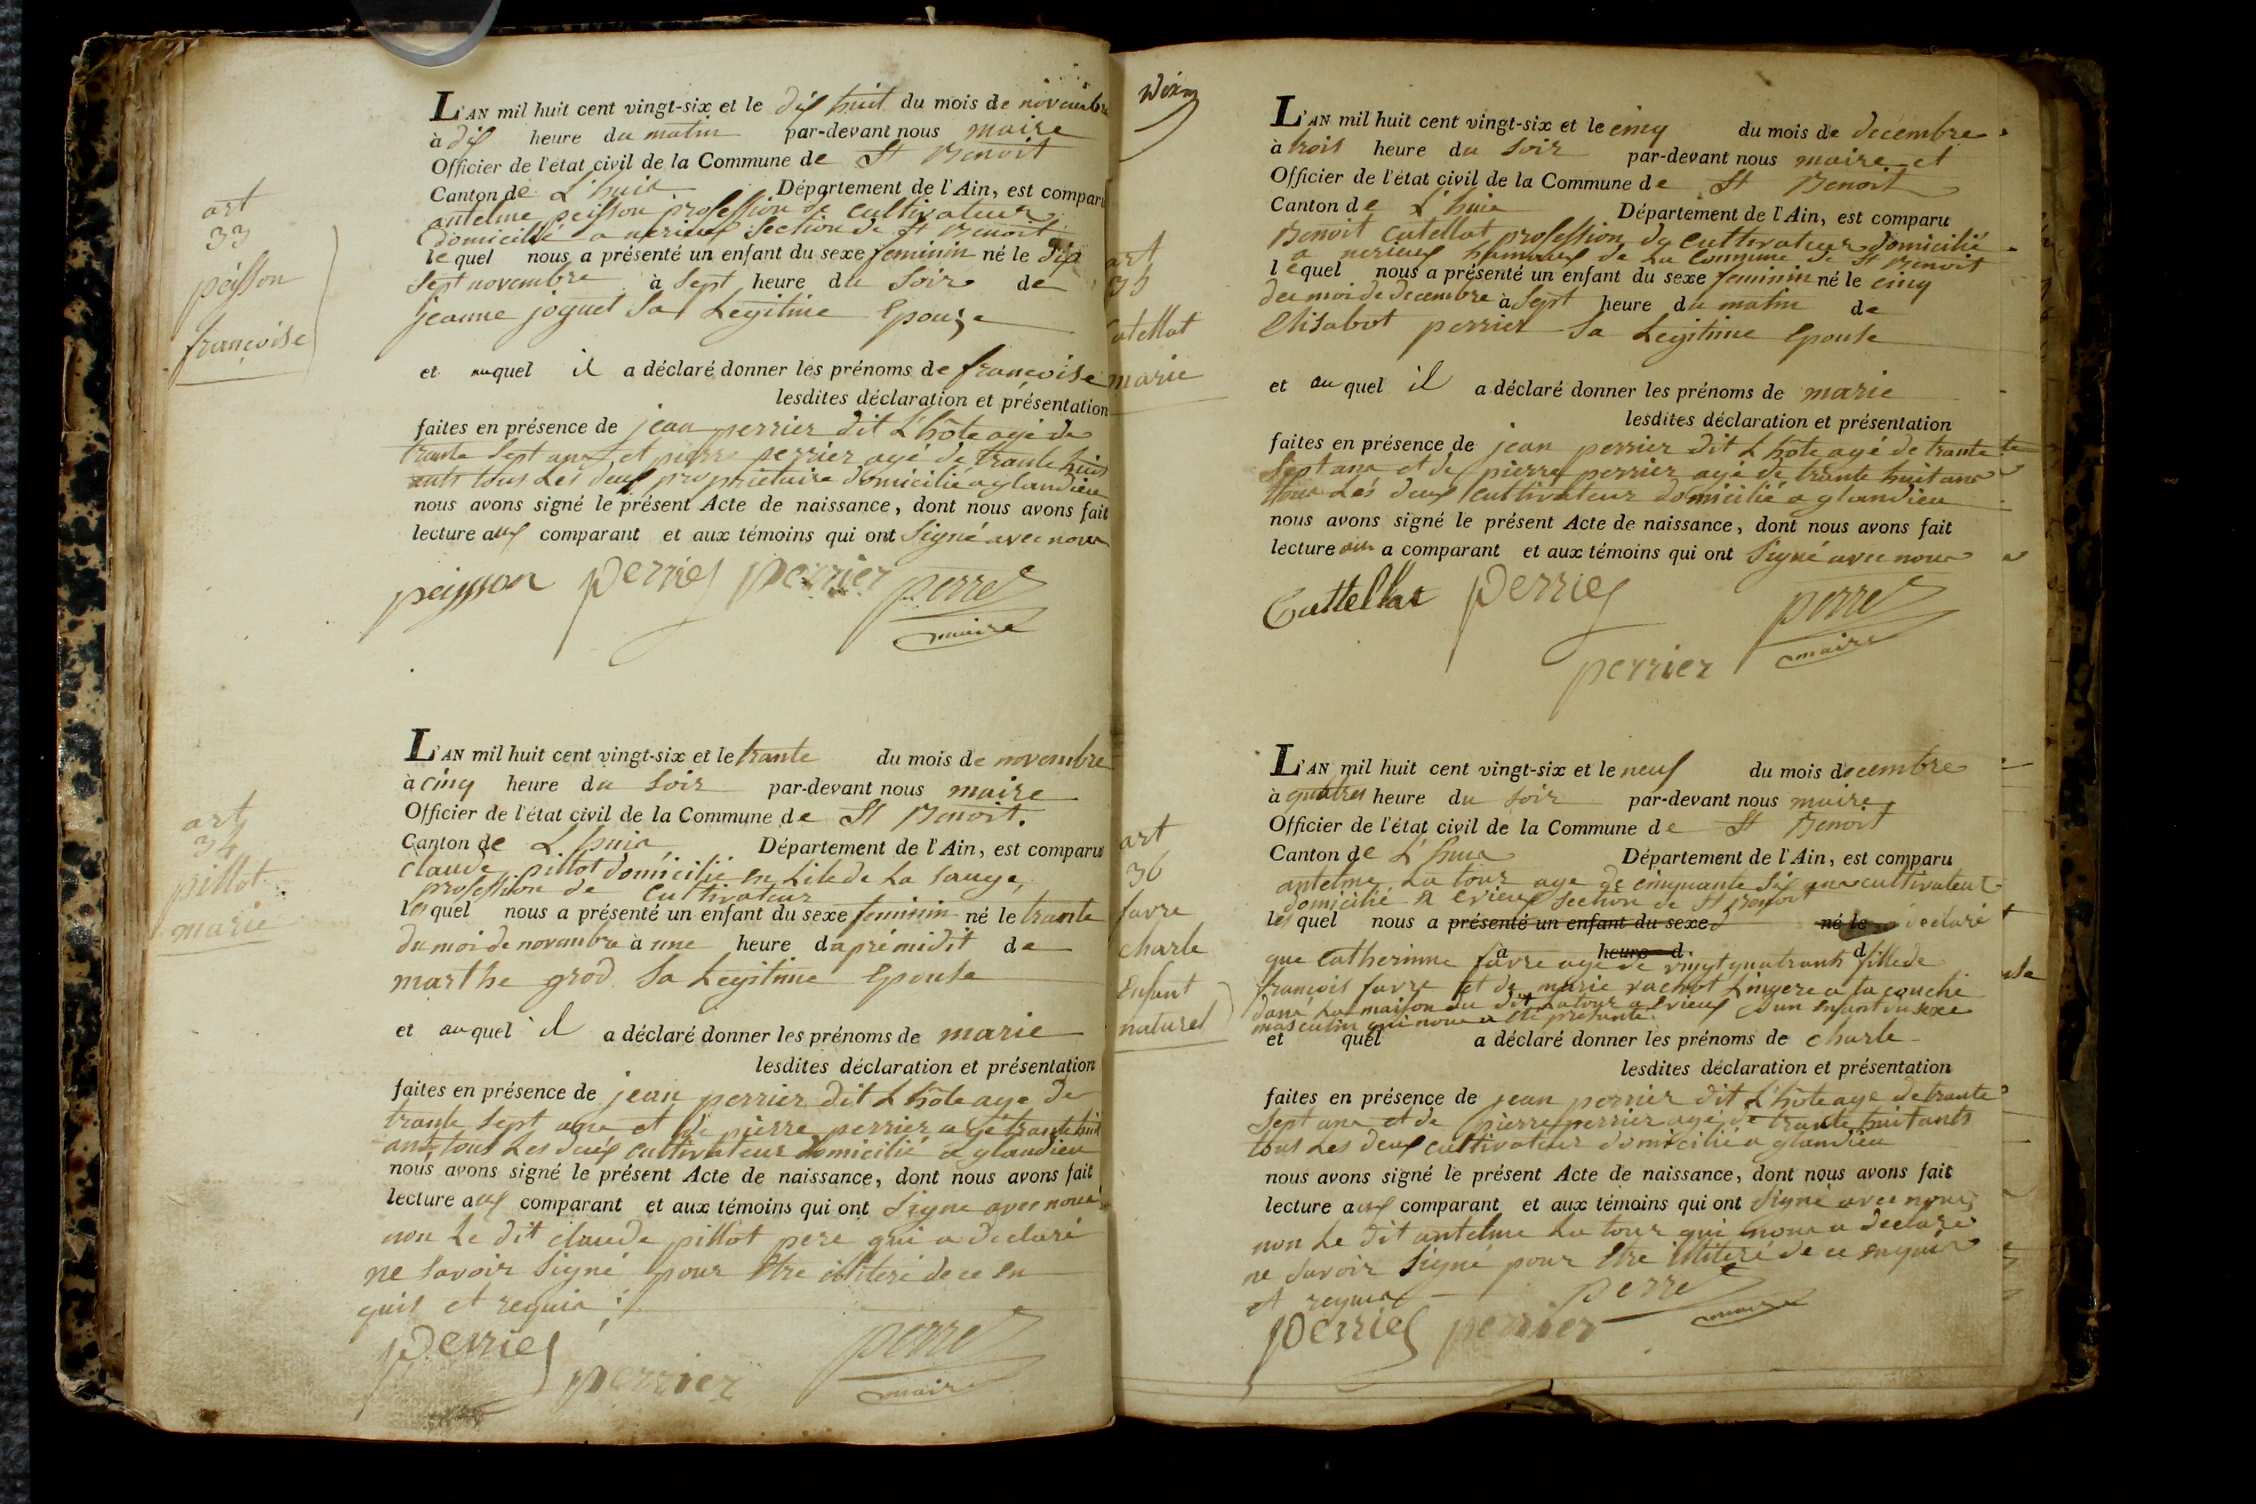 art
33
peisson
francoise
L'AN mil huit cent vingt-six et le dix huit du mois de novembre
à dix heure du matin par-devant nous maire
Officier de l'état civil de la Commune de St Benoit
Canton de L'huis Département de l'Ain, est comparu
antelme peisson profession de cultivateur
domicilié a nerieux section de St Benoit
lequel nous a présenté un enfant du sexe feminin né le dix
sept novembre à sept heure du soir de
jeanne joguet sa Legitime Epouse
et auquel il a déclaré donner les prénoms de francoise
lesdites déclaration et présentation
faites en présence de jean perrier dit L'hôte agé de
trante sept ans et pierre perrier agé de trante huit
ants tous Les deux propriétaire domicilié a glandieu
nous avons signé le présent Acte de naissance, dont nous avons fait
lecture aux comparant et aux témoins qui ont signé avec nous
peisson perrier perrier perret
maire
art
34
pillot
marie
L'AN mil huit cent vingt-six et le trante du mois de novembre
à cinq heure du soir par-devant nous maire
Officier de l'état civil de la Commune de St Benoit.
Canton de L'huis Département de l'Ain, est comparu
claude pillot domicilié en Lile de La sauge,
profession de cultivateur
lesquel nous a présenté un enfant du sexe feminin né le trante
du moi de novembre à une heure daprémidit de
marthe grod sa Legitime Epouse
et auquel il a déclaré donner les prénoms de marie
lesdites déclaration et présentation
faites en présence de jean perrier dit L'hôte age de
trante sept ans et de pierre perrier agé trante huit
ants tous Les deux cultivateur domicilié a glandieu
nous avons signé le présent Acte de naissance, dont nous avons fait
lecture aux comparant et aux témoins qui ont signe avec nous
non Le dit claude pillot pere qui a declaré
ne savoir signé pour Etre illiteré de ce en
quis et requis
perrier perrier perret
maire
art
35
catellat
marie
L'AN mil huit cent vingt-six et le cinq du mois de decembre
à trois heure du soir par-devant nous maire et
Officier de l'état civil de la Commune de St Benoit
Canton de L'huis Département de l'Ain, est comparu
Benoit catellat profession de cultivateur domicilié
a nerieux hamaux de La Commune de St Benoit
lequel nous a présenté un enfant du sexe feminin né le cinq
du moi de decembre à sept heure du matin de
Elisabet perrier sa Legitime Epouse
et auquel il a déclaré donner les prénoms de marie
lesdites déclaration et présentation
faites en présence de jean perrier dit L'hôte agé de trante
sept ans et de pierre perrier agé de trante huit ans
tous Les deux cultivateur domicilié a glandieu
nous avons signé le présent Acte de naissance, dont nous avons fait
lecture a comparant et aux témoins qui ont signé avec nous
Cattellat perrier perret
maire
perrier
art
36
favre
charle
Enfant
naturel
L'AN mil huit cent vingt-six et le neuf du mois decembre
à quatres heure du soir par-devant nous maire
Officier de l'état civil de la Commune de St Benoit
Canton de L'huis Département de l'Ain, est comparu
antelme La tour age de cinquante six ans cultivateur
domicilié a Evieux section de St Benoit
lesquel nous a présenté un enfant du sexe né le declaré
à heure d d
que catherinne favre agé de vingt quatrants fille de
francois favre et de marie rachot Lingere a la couché
dans La maison du dit Latour a Evieux d'un enfant du sexe
masculin qui nous a été présenté
et quel a déclaré donner les prénoms de charle
lesdites déclaration et présentation
faites en présence de jean perrier dit L'hôte age de trante
sept ans et de pierre perrier agé de trante huit ants
tous Les deux cultivateur domicilié a glandieu
nous avons signé le présent Acte de naissance, dont nous avons fait
lecture aux comparant et aux témoins qui ont signé avec nous
non Le dit antelme La tour qui nous a declaré
ne savoir signé pour Etre illiteré de ce enquis
et requis perret
maire
perrier perrier